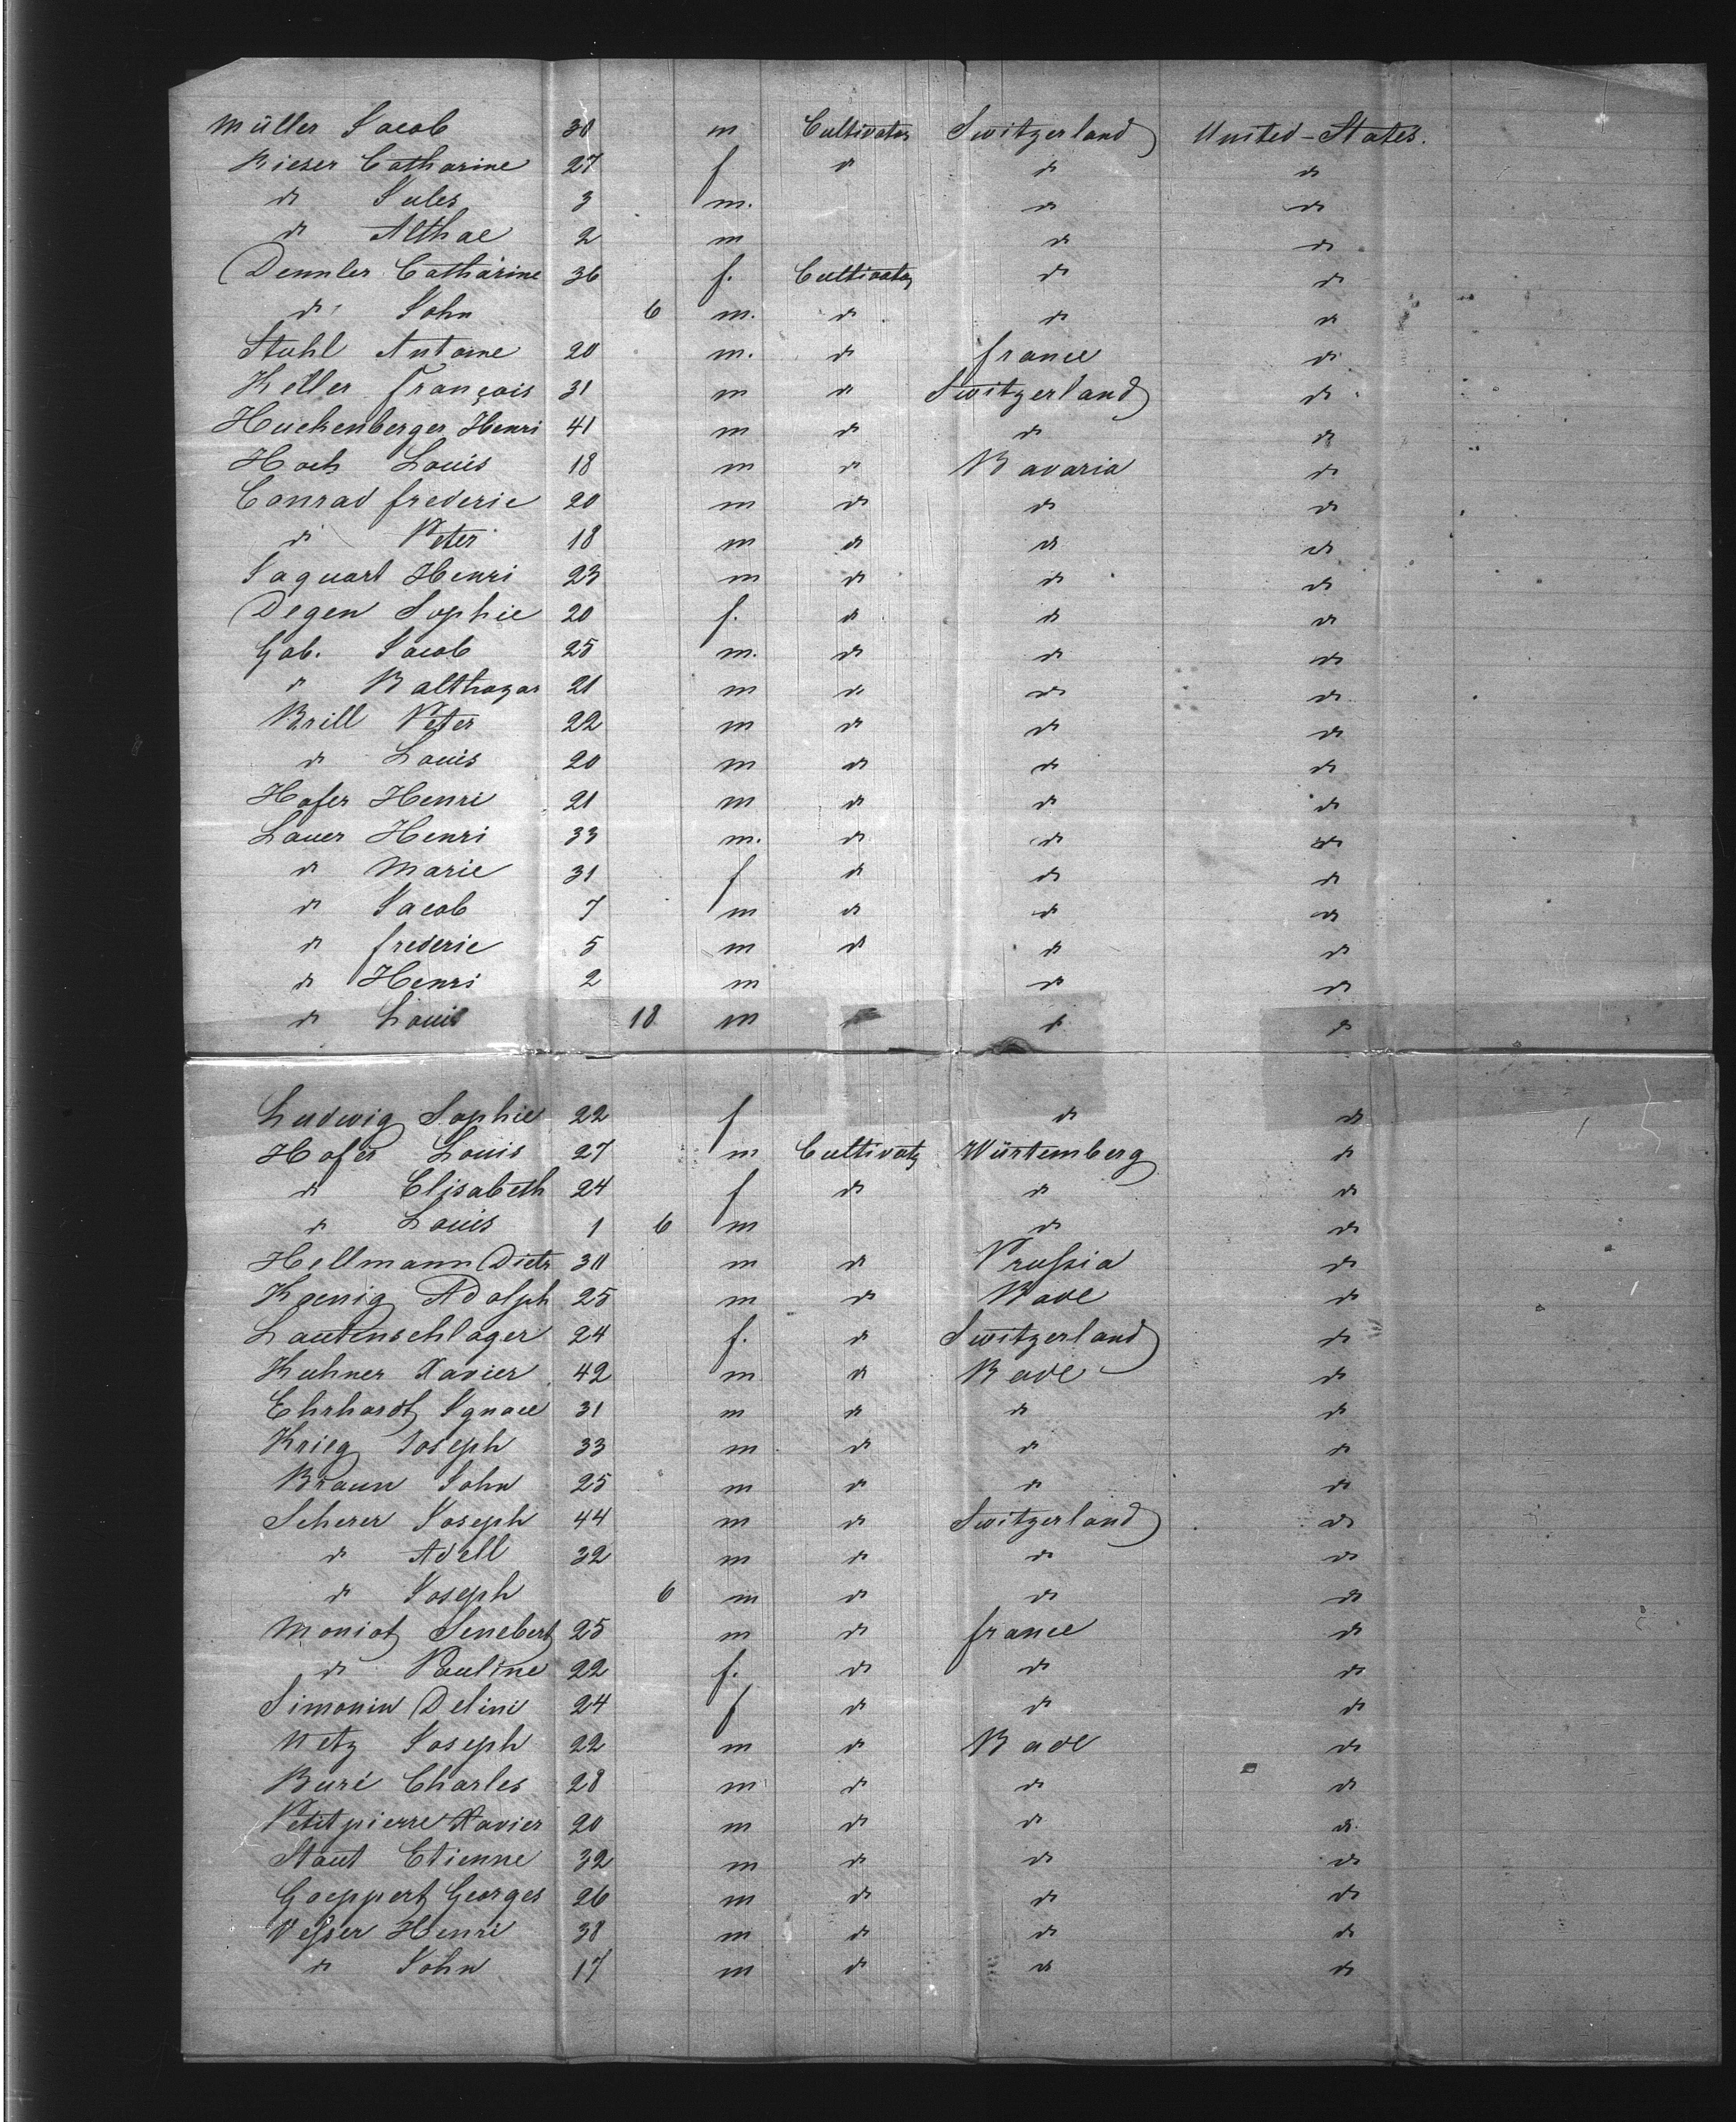 Müller Jacob 30 m Cultivator Switzerland United-States.
Rieser Catharine 27 f do do do
do Jules 3 m. do do
do Althae 2 m do do
Dennler Catharine 36 f. Cultivator do do
do John 6 m. do do do
Stahl Antoine 20 m. do france do
Keller françois 31 m do Switzerland do
Huckenberger Henri 41 m do do do
Hoch Louis 18 m do Bavaria do
Conrad frederic 20 m do do do
do Peter 18 m do do do
Jaquart Henri 23 m do do do
Degen Sophie 20 f. do do do
Gab. Jacob 25 m. do do do
do Balthazar 21 m do do do
Brill Peter 22 m do do do
do Louis 20 m do do do
Hofer Henri 21 m do do do
Lauer Henri 33 m. do do do
do Marie 31 f do do do
do Jacob 7 m do do do
do frederic 5 m do do do
do Henri 2 m do do
do Louis 18 m do do
Ludwig Sophie 22 f do do
Hofer Louis 27 m Cultivat Würtemberg do
do Elisabeth 24 f do do do
do Louis 1 6 m do do
Hellmann Dietr 30 m do Prussia do
Koenig Adolph 25 m do Bade do
Lautenschlager 24 f. do Switzerland do
Kuhner Xavier 42 m do Bade do
Ehrhardt Ignace 31 m do do do
Krieg Joseph 33 m do do do
Braun John 25 m do do do
Scherer Joseph 44 m do Switzerland do
do Adell 32 m do do do
do Joseph 6 m do do do
Moniot Senebert 25 m do france do
do Pauline 22 f. do do do
Simonin Delini 24 f do do do
Metz Joseph 22 m do Bade do
Buré Charles 28 m do do do
Petitpierre Xavier 20 m do do do
Staut Etienne 32 m do do do
Goeppert Georges 26 m do do do
Vesser Henri 38 m do do do
do John 17 m do do do